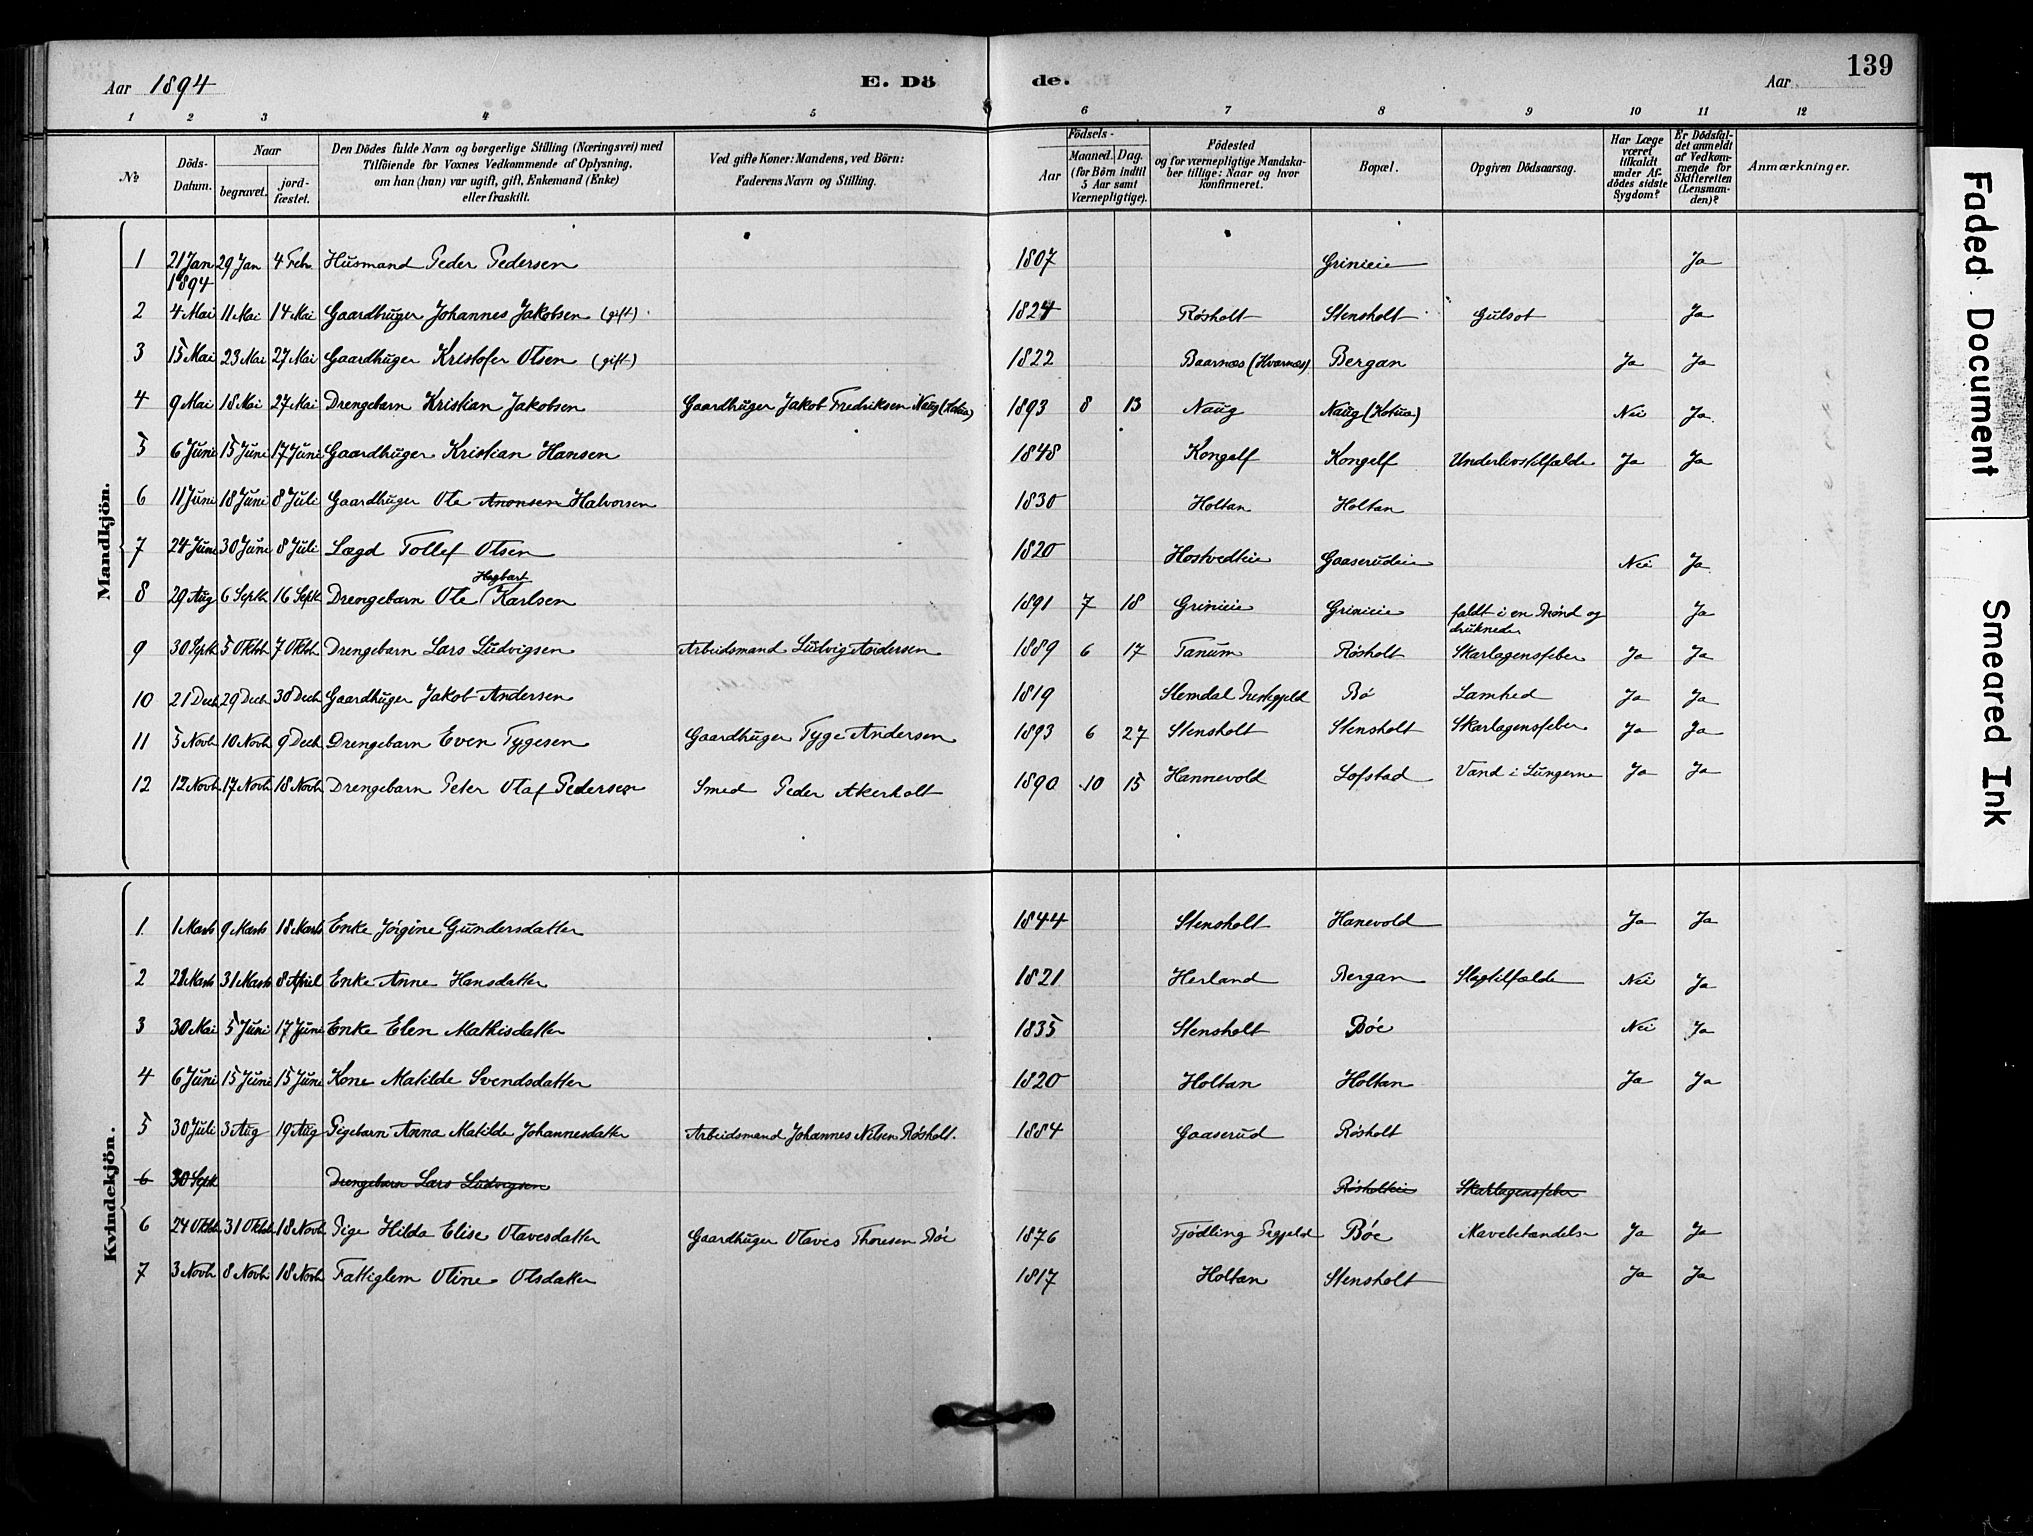 Aar 1894 E. Dö de. Aar 139
1 2 3 4 5 6 7 8 9 10 11 12
№
Döds-Datum.
Naar
begravet.
jord-fæstet.
Den Dödes fulde Navn og borgerlige Stilling (Næringsvei) med
Tilföiende for Voxnes Vedkommende af Oplysning,
om han (hun) var ugift, gift, Enkemand (Enke)
eller fraskilt.
Ved gifte Koner: Mandens, ved Börn:
Faderens Navn og Stilling.
Födsels-
Aar
Maaned. Dag.
(for Börn indtil
5 Aar samt
Værnepligtige).
Födested
og for værnepligtige Mandska-
ber tillige: Naar og hvor
konfirmeret.
Bopæl.
Opgiven Dödsaarsag.
Har Læge
været
tilkaldt
under Af-
dödes sidste
Sygdom?
Er Dödsfal-
det anmeldt
af Vedkom-
mende for
Skifteretten
(Lensman-
den)?
Anmærkninger.
Mandkjön.
1 21 Jan 1894 29 Jan 4 Feb. Husmand Peder Pedersen 1807 Grinieie Ja
2 4 Mai 11 Mai 14 Mai Gaardbruger Johannes Jakobsen (gift) 1824 Røsholt Stensholt Gulsot Ja
3 15 Mai 23 Mai 27 Mai Gaardbruger Kristofer Olsen (gift) 1822 Baarnæs (Hvarnes) Bergan Ja Ja
4 9 Mai 18 Mai 27 Mai Drengebarn Kristian Jakobsen Gaardbruger Jakob Fredriksen Naug (Kotua) 1893 8 13 Naug Naug (Kotua) Nei Ja
5 6 Juni 15 Juni 17 Juni Gaardbruger Kristian Hansen 1848 Kongelf Kongelf Underlivstilfælde Ja Ja
6 11 Juni 18 Juni 8 Juli Gaardbruger Ole Anonsen Halvorsen 1830 Holtan Holtan
7 24 Juni 30 Juni 8 Juli Lægd Tollef Olsen 1820 Hostvedteie Gaaserudeie Nei Ja
8 29 Aug 6 Septb 16 Septb Drengebarn Ole Hagbart Karlsen 1891 7 18 Grinieie Grinieie faldt i en Brønd og druknede Ja
9 30 Septb 5 Oktbr 7 Oktbr Drengebarn Lars Ludvigsen Arbeidsmand Ludvig Andersen 1889 6 17 Tanum Røsholt Skarlagensfeber Ja Ja
10 21 Decb 29 Decb 30 Decb Gaardbruger Jakob Andersen 1819 Slemdal Prestegjeld Bø Lamhed Ja Ja
11 5 Novb 10 Novb 9 Decb Drengebarn Even Tygesen Gaardbruger Tyge Andersen 1893 6 27 Stensholt Stensholt Skarlagensfeber Ja Ja
12 12 Novb 17 Novb 18 Novb Drengebarn Peter Olaf Pedersen Smed Peder Akerholt 1890 10 15 Hannevold Lofstad Vand i Lungerne Ja Ja
Kvindekjön.
1 1 Marts 9 Marts 18 Marts Enke Jørgine Gundersdatter 1844 Stensholt Hanevold Ja Ja
2 28 Marts 31 Marts 8 April Enke Anne Hansdatter 1821 Herland Bergan Slagtilfælde Nei Ja
3 30 Mai 5 Juni 17 Juni Enke Elen Mathisdatter 1835 Stensholt Bøe Nei Ja
4 6 Juni 15 Juni 15 Juni Kone Matilde Svendsdatter 1820 Holtan Holtan Ja Ja
5 30 Juli 3 Aug 19 Aug Pigebarn Anna Matilde Johannesdatter Arbeidsmand Johannes Nilsen Røsholt. 1884 Gaaserud Røsholt
6 30 Septb Drengebarn Lars Ludvigsen Røsholteie Skarlagensfeber
6 24 Oktbr 31 Oktbr 18 Novb Pige Hilda Elise Olavesdatter Gaardbruger Olaves Thoresen Bøe 1876 Tjødling Prgjeld Bøe Mavebetændelse Ja Ja
7 3 Novb 8 Novb 18 Novb Fattiglem Oline Olsdatter 1817 Holtan Stensholt Ja Ja
Faded Document
Smeared Ink